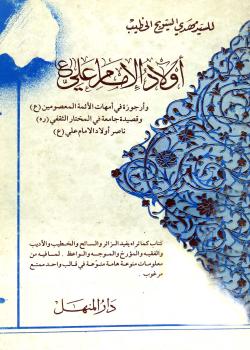 للسيد مهدي السويج الخطيب
أولاد الإمام علي (ع)
وأرجوزة في أمهات الأئمة المعصومين (ع)
وقصيدة جامعة في المختار الثقفي (ره)
ناصر أولاد الإمام علي (ع)
كتاب كما تراه يفيد الزائر والسائح والخطيب والأديب
والفقيه والمؤرخ والموجه والواعظ . لما فيه من
معلومات منوعة هامة منوعة في قالب واحد ممتع
مرغوب .
دار المنهل